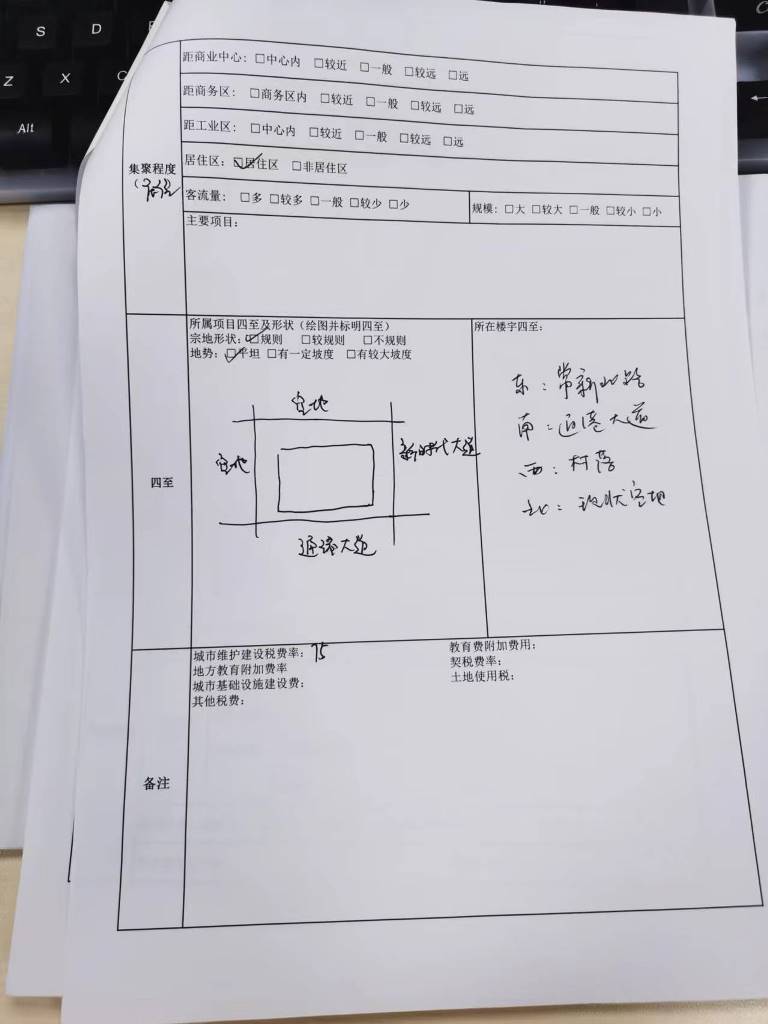 S D
Z X C
Alt
距商业中心：□中心内 □较近 □一般 □较远 □远
距商务区：□商务区内 □较近 □一般 □较远 □远
距工业区：□中心内 □较近 □一般 □较远 □远
集聚程度
居住区：☑居住区 □非居住区
客流量：□多 □较多 □一般 □较少 □少
规模：□大 □较大 □一般 □较小 □小
主要项目：
四至
所属项目四至及形状（绘图并标明四至）
宗地形状：☑规则 □较规则 □不规则
地势：☑平坦 □有一定坡度 □有较大坡度
空地
空地
新时代大道
通港大道
所在楼宇四至：
东：常新北路
南：通港大道
西：村落
北：现状空地
备注
城市维护建设税费率：
教育费附加费用：
地方教育附加费率
契税费率：
城市基础设施建设费：
土地使用税：
其他税费：